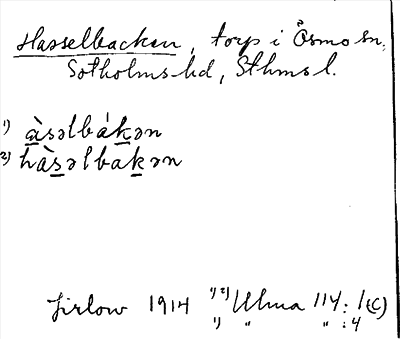 Hasselbacken, torp i Ösmo sn,
Sotholms hd, Sthms l.
1) àsəlbákən
2) hàsəlbakən
1914 1) 2) Ulma 114:1(C)
1) " " :4